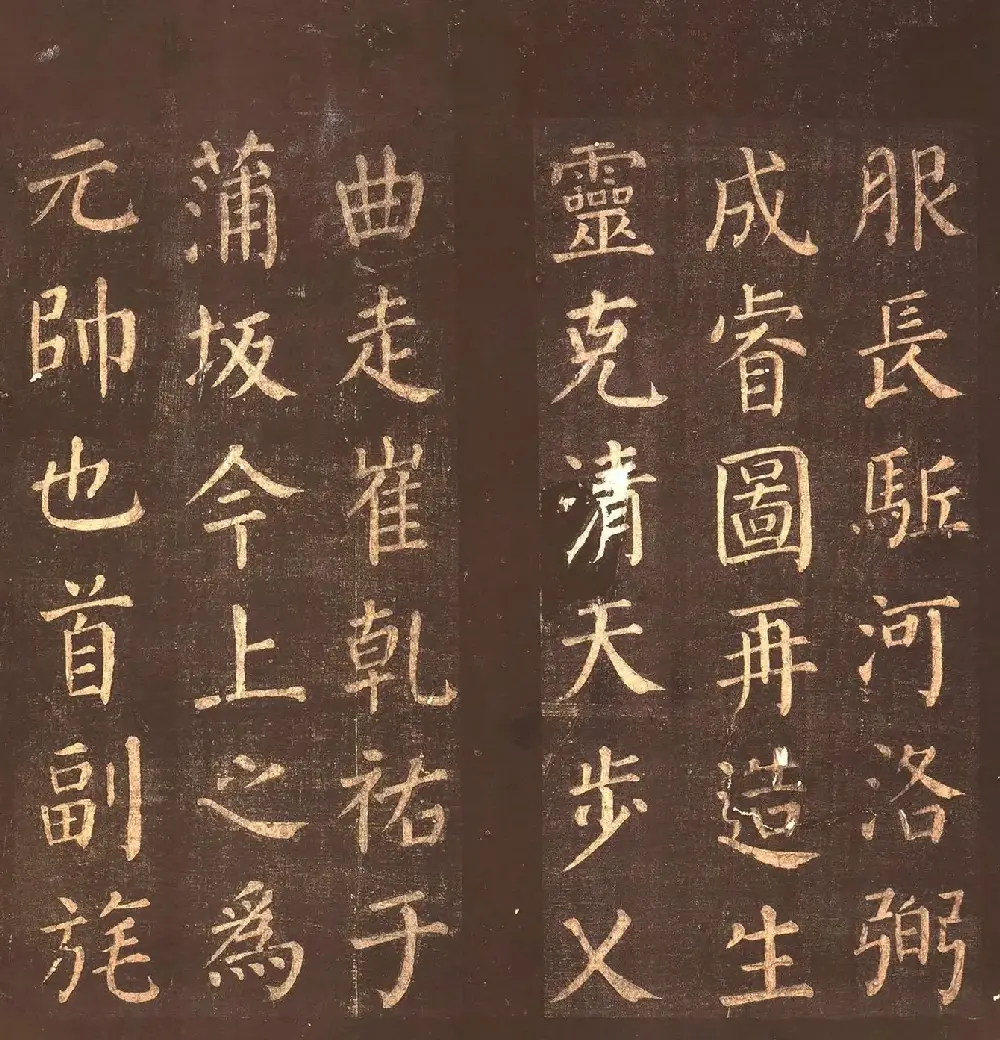 服長駈河洛弼
成睿圖再造生
靈克清天步乂
曲走崔乹祐于
蒲坂今上之為
元帥也首副旄